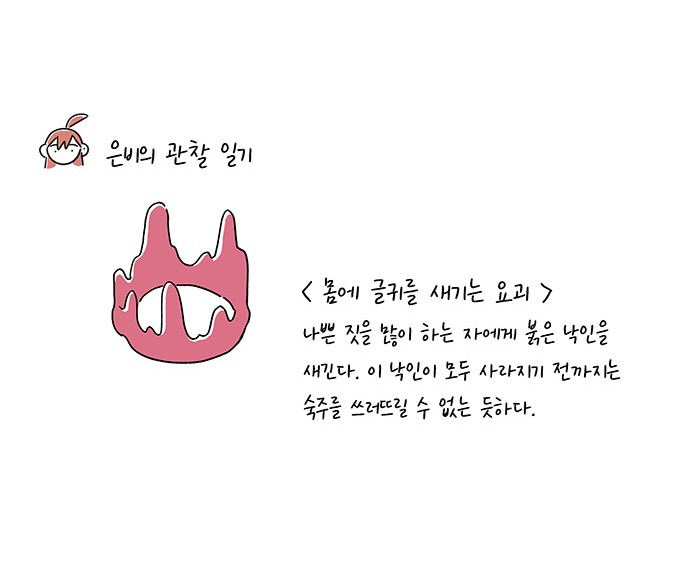 은비의 관찰 일기
< 몸에 글귀를 새기는 요괴 >
나쁜 짓을 많이 하는 자에게 붉은 낙인을
새긴다. 이 낙인이 모두 사라지기 전까지는
숙주를 쓰러뜨릴 수 없는 듯하다.